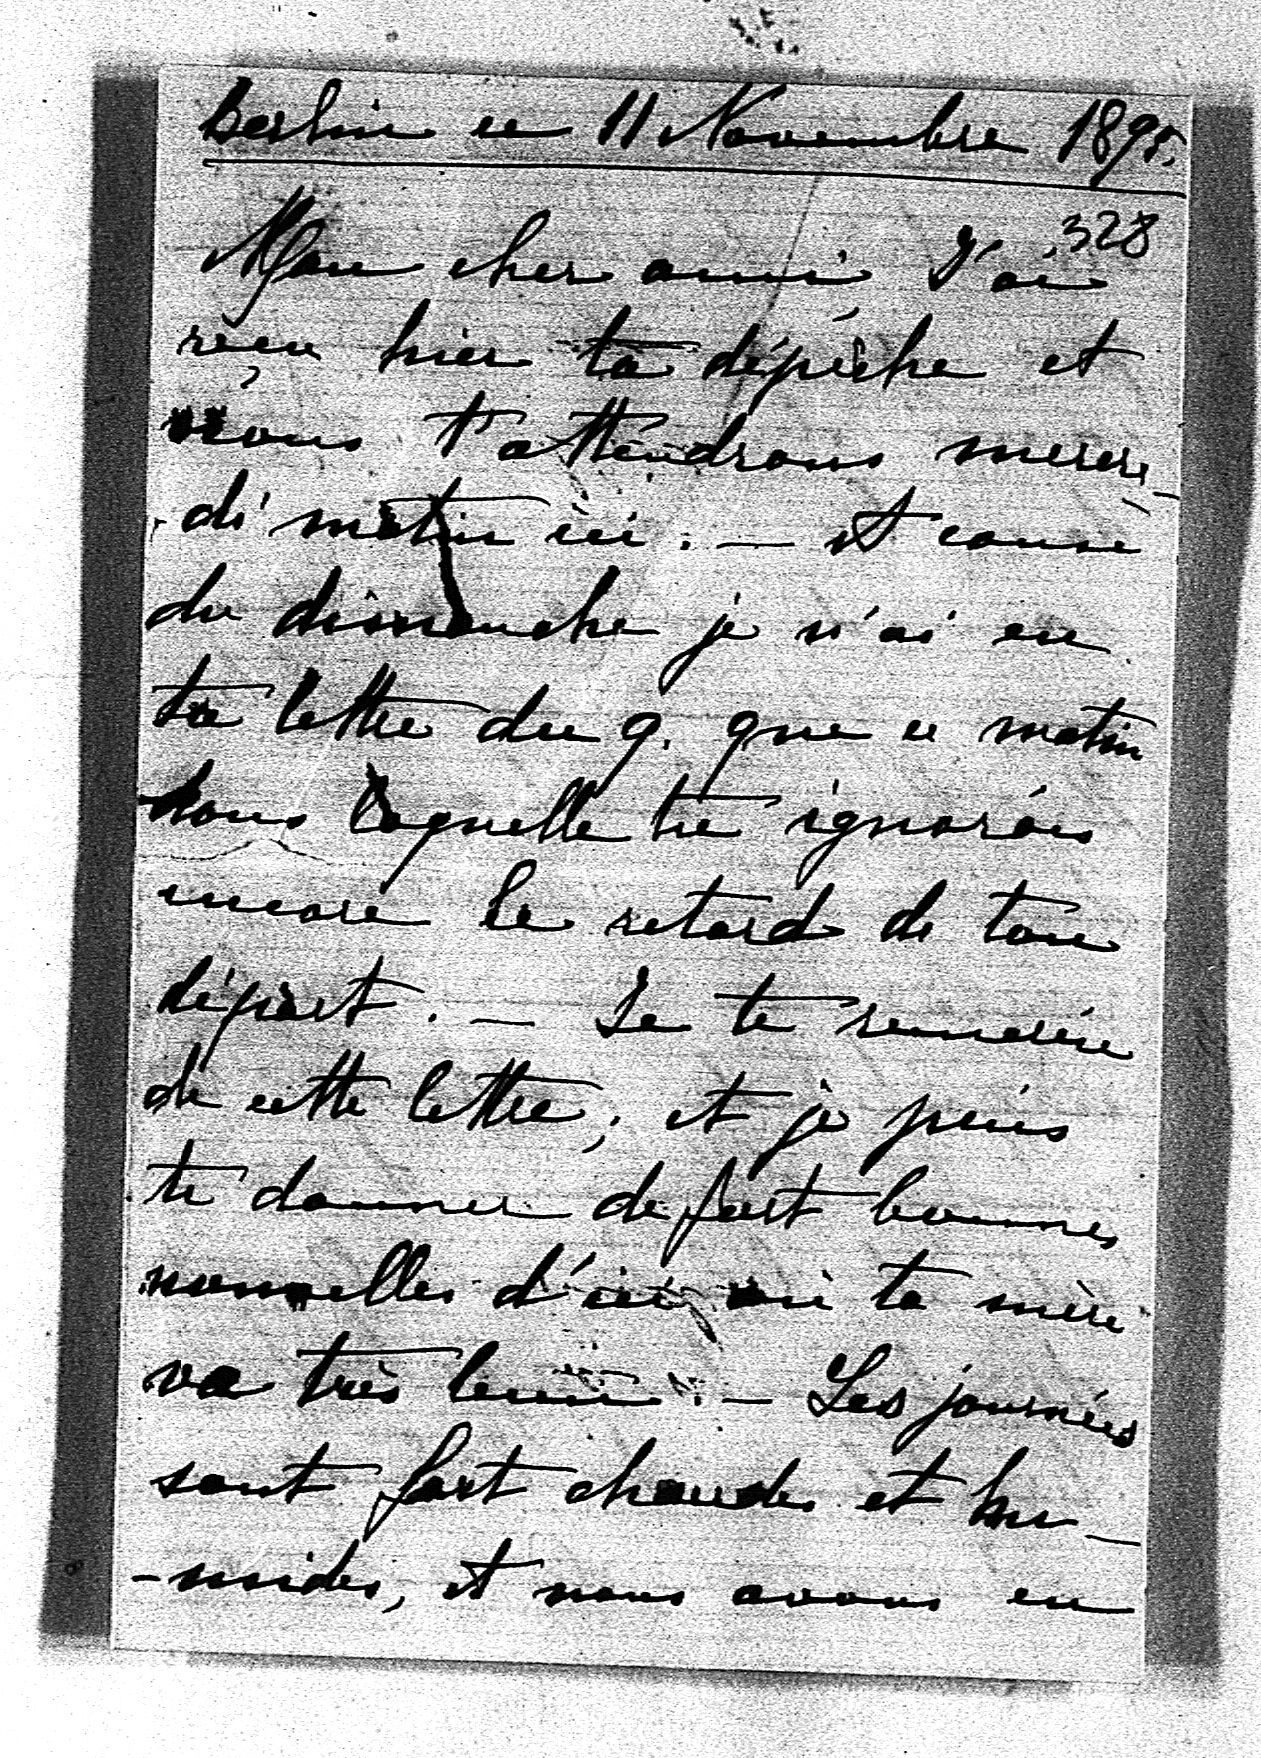 Berlin ce 11 Novembre 1895.
328
Mon cher ami, J'ai
reçu hier ta dépêche et
nous t'attendrons mercre-
-di matin ici. — A cause
du dimanche je n'ai eu
ta lettre du 9. que ce matin
dans laquelle tu ignorais
encore le retard de ton
départ. — Je te remercie
de cette lettre, et je puis
te donner de fort bonnes
nouvelles d'ici où ta mère
va très bien. — Les journées
sont fort chaudes et hu-
-mides, et nous avons eu